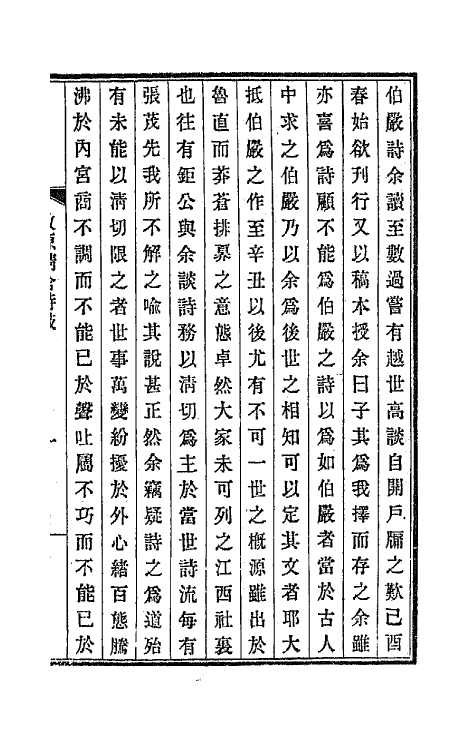 伯嚴詩余讀至數過嘗有越世高談自開戶牖之歎已酉
春始欲刊行又以稿本授余曰子其爲我擇而存之余雖
亦喜爲詩顧不能爲伯嚴之詩以爲如伯嚴者當於古人
中求之伯嚴乃以余爲後世之相知可以定其文者耶大
抵伯嚴之作至辛丑以後尤有不可一世之概源雖出於
魯直而莽蒼排奡之意態卓然大家未可列之江西社裏
也往有鉅公與余談詩務以淸切爲主於當世詩流每有
張茂先我所不解之喩其說甚正然余竊疑詩之爲道殆
有未能以淸切限之者世事萬變紛擾於外心緒百態騰
沸於內宮商不調而不能已於聲吐屬不巧而不能已於